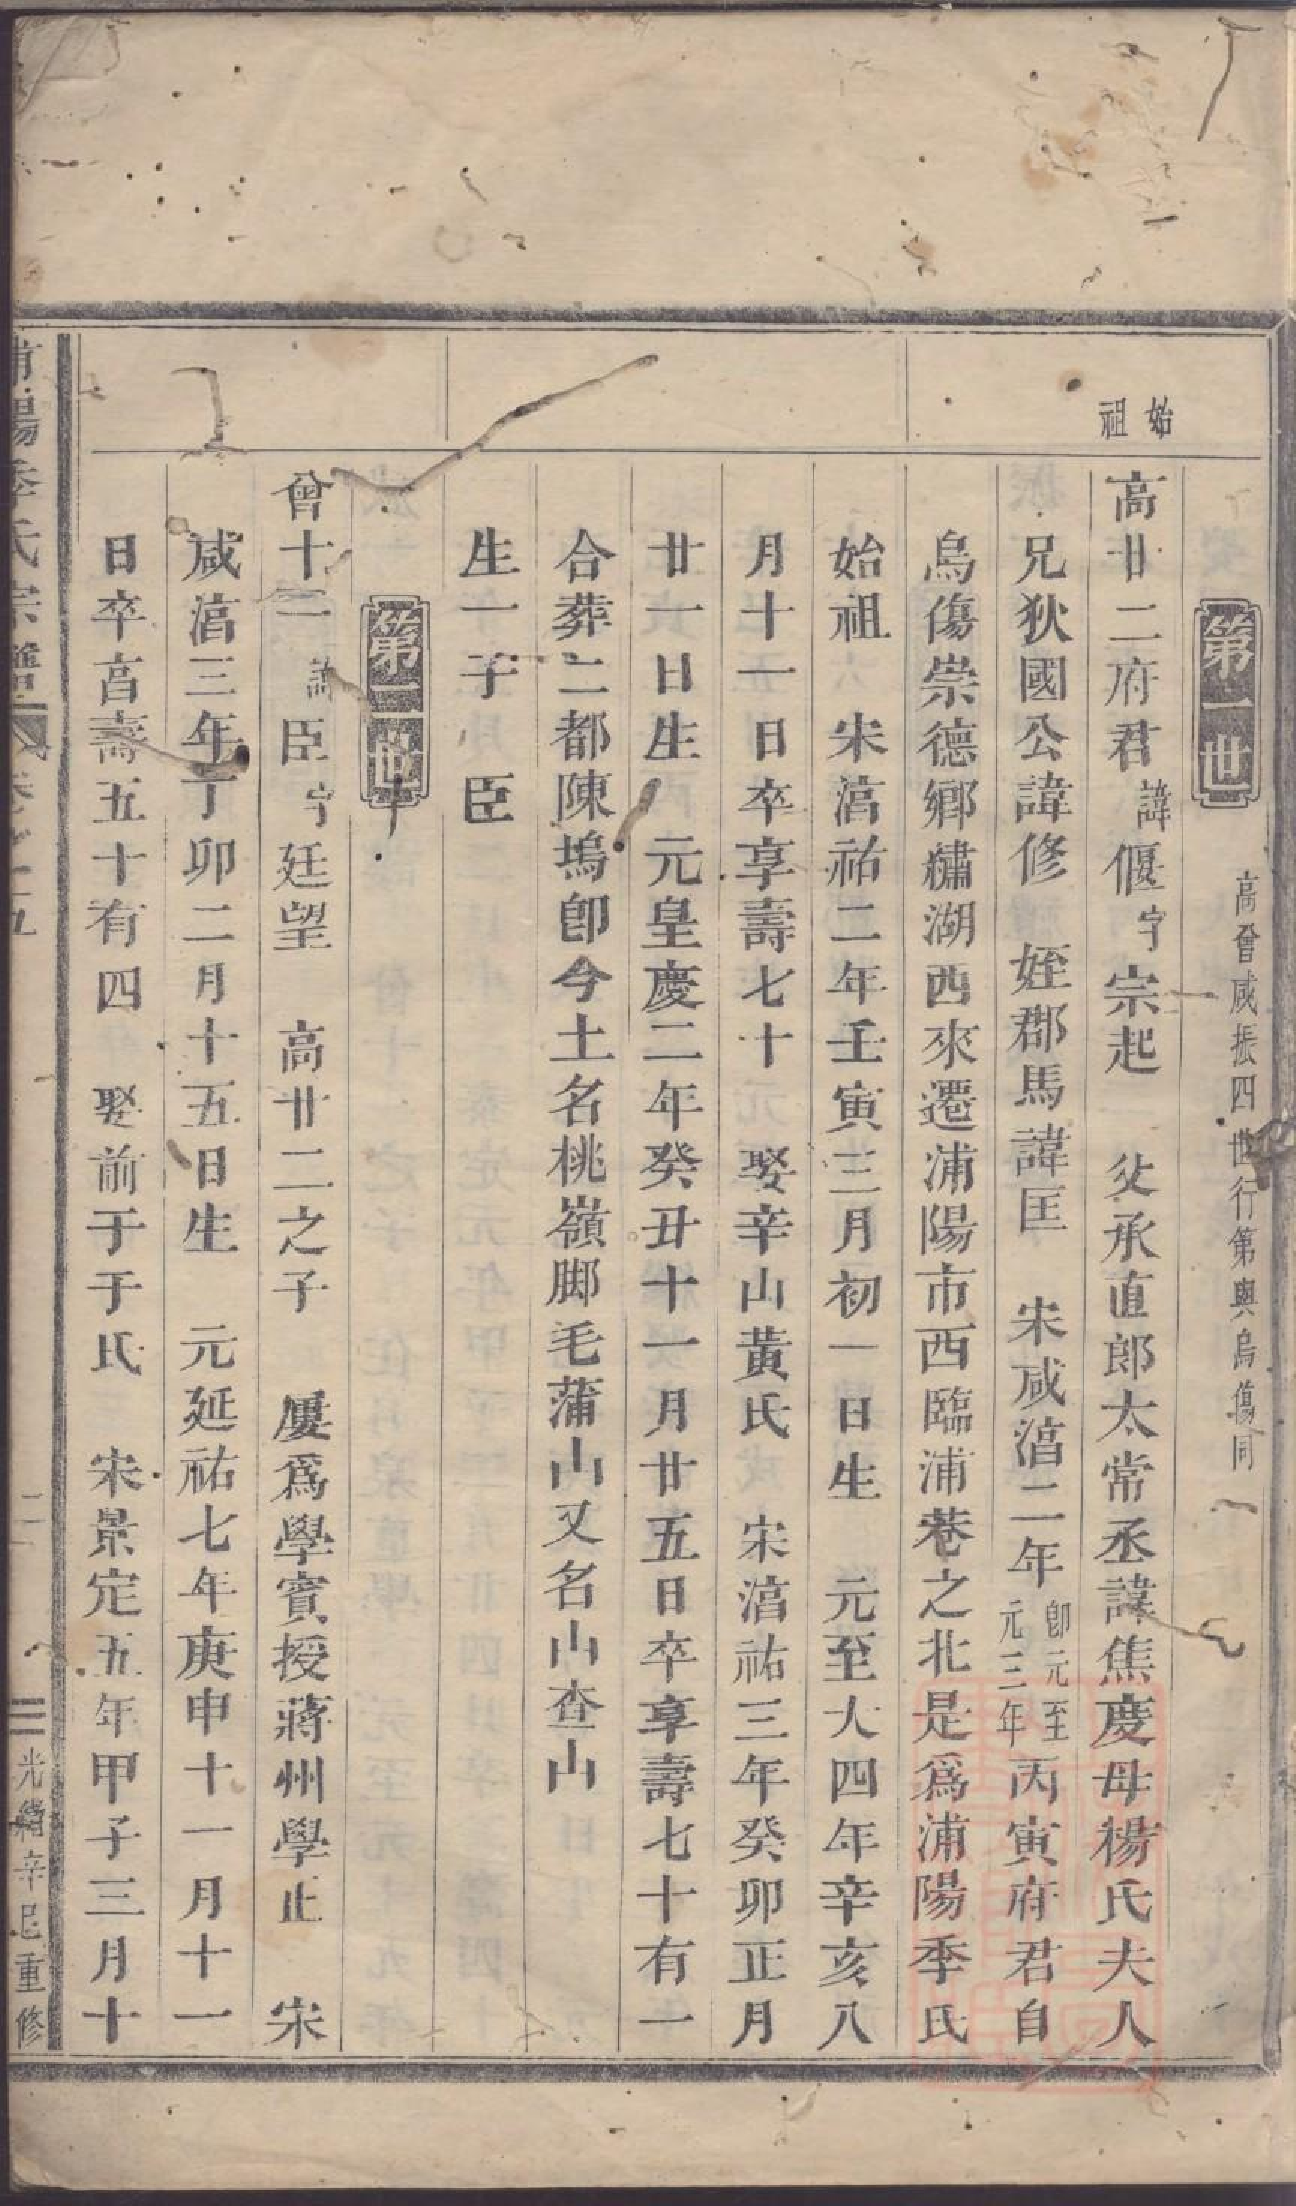 第一世 高曾咸振四世行第與烏傷同
始祖
高廿二府君諱偃字宗起 父承直郎太常丞諱焦度母楊氏夫人
兄狄國公諱修 姪郡馬諱匡 宋咸湻二年卽元至元三年丙寅府君自
烏傷崇德鄉繡湖西來遷浦陽市西臨浦巷之北是爲浦陽季氏
始祖 宋湻祐二年壬寅三月初一日生 元至大四年辛亥八
月十一日卒享壽七十 娶辛山黃氏 宋湻祐三年癸卯正月
廿一日生 元皇慶二年癸丑十一月廿五日卒享壽七十有一
合葬二都陳塢卽今土名桃嶺脚毛蒲山又名山查山
生一子 臣
第二世
曾十二諱臣字廷望 高廿二之子 屢爲學賓授蔣州學正 宋
咸湻三年丁卯二月十五日生 元延祐七年庚申十一月十一
日卒享壽五十有四 娶前于于氏 宋景定五年甲子三月十
浦陽季氏宗譜 卷之五 二 光緒辛巳重修